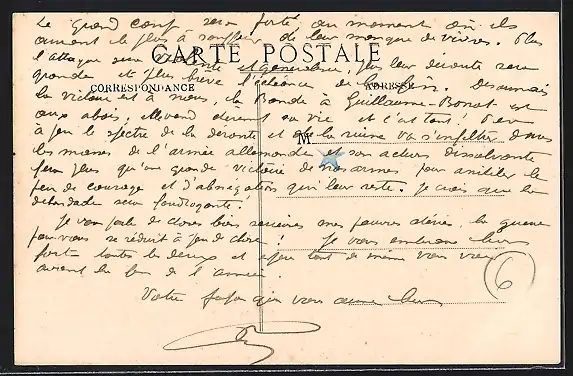 Le grand coup sera porté, au moment où ils
auront le plus à souffrir de leur manque de vivres. Plus
l'attaque sera violente et généralisée, plus leur déroute sera
CARTE POSTALE
grande et plus brève l'échéance de la fin. Désormais
CORRESPONDANCE
ADRESSE
la victoire est à nous, la Bande à Guillaume-Bonot est
aux abois, elle vend chèrement sa vie et c'est tout! Peu
à peu le spectre de la déroute et de la ruine va s'infiltrer dans
M
les masses de l'armée allemande et son action dissolvante
fera plus qu'une grande victoire de nos armes pour annihiler le
peu de courage et d'abnégation qui leur reste. Je crois que la
débandade sera foudroyante!
Je vous parle de choses bien sérieuses mes pauvres chéries, la guerre
pour vous se réduit à peu de chose! Je vous embrasse bien
fort toutes les deux et espère tout de même vous voir
avant la fin de l'année.
Votre papa qui vous aime bien
6